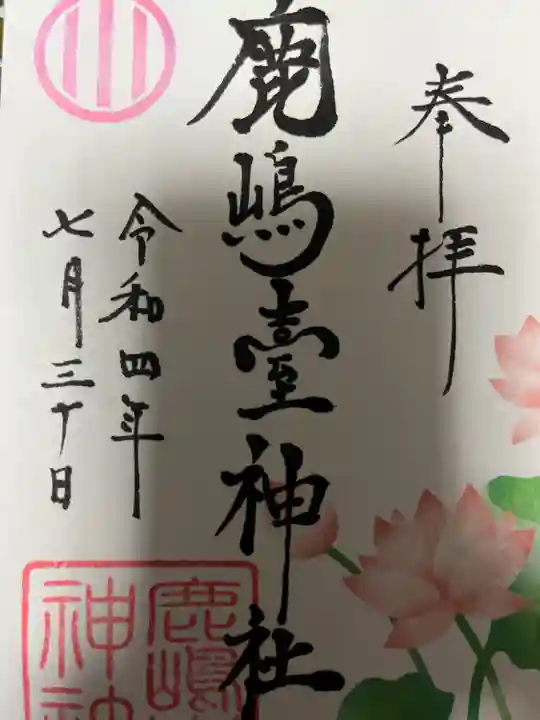 奉拝
鹿嶋臺神社
令和四年
七月三十日
鹿嶋
神社